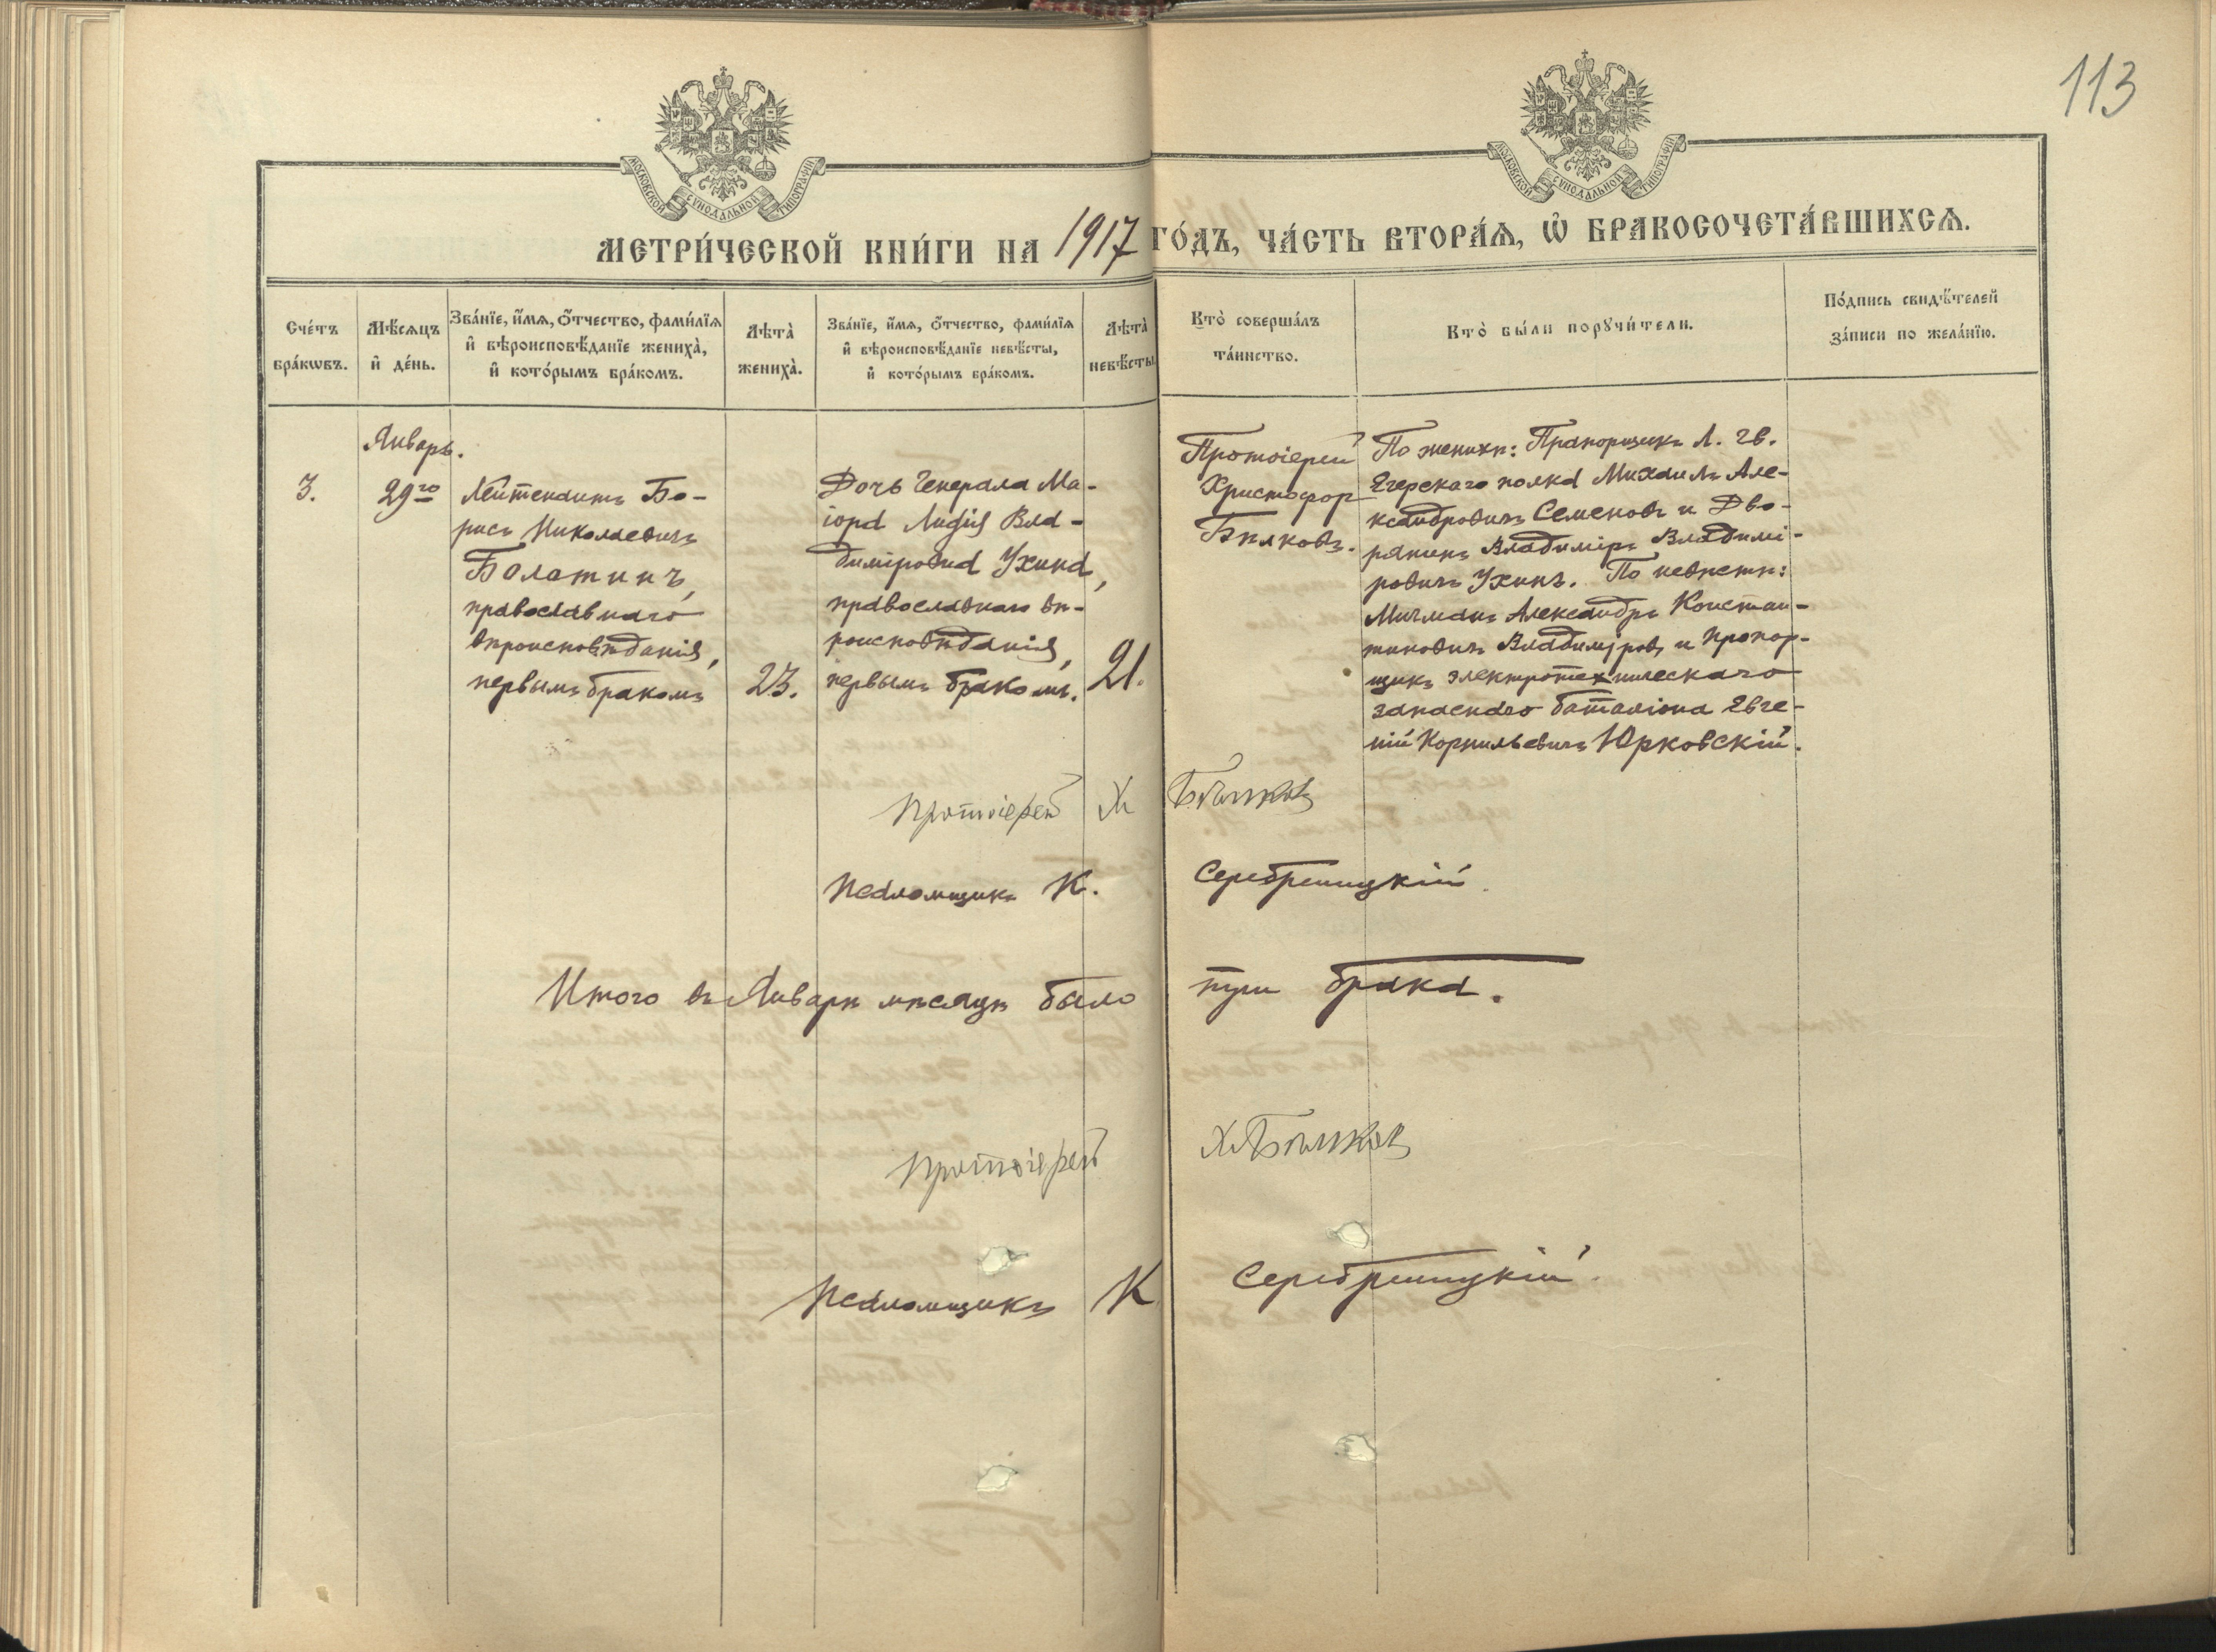 113
МОСКОВСКОЙ СУНОДАЛЬНОЙ ТИПОГРАФІИ
МОСКОВСКОЙ СУНОДАЛЬНОЙ ТИПОГРАФІИ
МЕТРИ́ЧЕСКОЙ КНИ́ГИ НА 1917 ГО́ДЪ, ЧА́СТЬ ВТОРА́Ѧ, Ѡ҆ БРАКОСОЧЕТА́ВШИХСѦ.
Сче́тъ
бра́кѡвъ.
Мѣ́сѧцъ
и҆ де́нь.
Зва́нїе, и҆́мѧ, ѻ҆́тчество, фами́лїѧ
и҆ вѣроисповѣ́данїе жениха̀,
и҆ кото́рымъ бра́комъ.
Лѣта̀
жениха̀.
Зва́нїе, и҆́мѧ, ѻ҆́тчество, фами́лїѧ
и҆ вѣроисповѣ́данїе невѣ́сты,
и҆ кото́рымъ бра́комъ.
Лѣта̀
невѣ́сты
Кто̀ соверша́лъ
та́инство.
Кто̀ бы́ли порꙋчи́тели.
По́дпись свидѣ́телей
за́писи по жела́нїю.
3.
Январь.
29го
Лейтенантъ Бо-
рисъ Николаевичъ
Болатинъ,
православнаго
вѣроисповѣданія,
первымъ бракомъ
23.
Дочь Генерала Ма-
іора Лидія Вла-
диміровна Ухина,
православнаго вѣ-
роисповѣданія,
первымъ бракомъ.
21.
Протоіерей
Христофор
Бѣлковъ.
По женихѣ: Прапорщикъ Л. гв.
Егерскаго полка Михаилъ Але-
ксандровичъ Семеновъ и Дво-
рянинъ Владиміръ Владимі-
ровичъ Ухинъ. По невѣстѣ:
Мичманъ Александръ Констан-
тиновичъ Владиміровъ и прапор-
щикъ электротехническаго
запаснаго баталіона Евге-
ній Корнильевичъ Юрковскій.
Протоіерей Х Бѣлковъ
Псаломщикъ К. Серебреницкій.
Итого въ Январѣ мѣсяцѣ было три брака.
Протоіерей Х Бѣлковъ
Псаломщикъ К Серебреницкій.